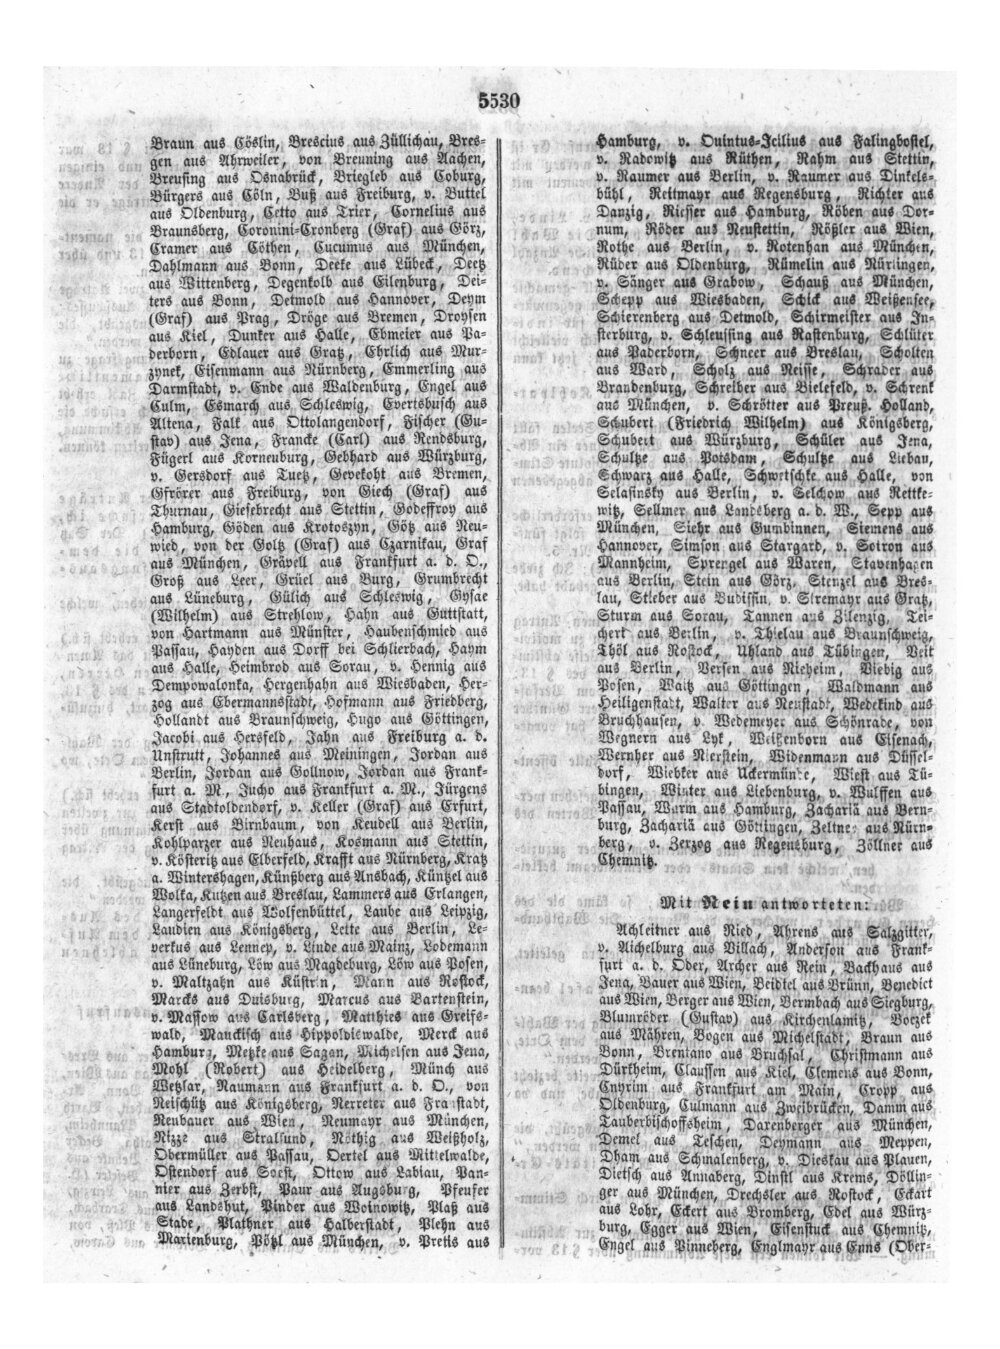 5530
Braun aus Cöslin, Brescius aus Züllichau, Bres-
gen aus Ahrweiler, von Breuning aus Aachen,
Breusing aus Osnabrück, Briegleb aus Coburg,
Bürgers aus Cöln, Buß aus Freiburg, v. Buttel
aus Oldenburg, Cetto aus Trier, Cornelius aus
Braunsberg, Coronini-Cronberg (Graf) aus Görz,
Cramer aus Cöthen, Cucumus aus München,
Dahlmann aus Bonn, Deeke aus Lübeck, Deetz
aus Wittenberg, Degenkolb aus Eilenburg, Dei-
ters aus Bonn, Detmold aus Hannover, Deym
(Graf) aus Prag, Dröge aus Bremen, Droysen
aus Kiel, Dunker aus Halle, Ebmeier aus Pa-
derborn, Edlauer aus Gratz, Ehrlich aus Mur-
zynek, Eisenmann aus Nürnberg, Emmerling aus
Darmstadt, v. Ende aus Waldenburg, Engel aus
Culm, Esmarch aus Schleswig, Evertsbusch aus
Altena, Falk aus Ottolangendorf, Fischer (Gu-
stav) aus Jena, Francke (Carl) aus Rendsburg,
Fügerl aus Korneuburg, Gebhard aus Würzburg,
v. Gersdorf aus Tuetz, Gevekoht aus Bremen,
Gfrörer aus Freiburg, von Giech (Graf) aus
Thurnau, Giesebrecht aus Stettin, Godeffroy aus
Hamburg, Göden aus Krotoszyn, Götz aus Neu-
wied, von der Goltz (Graf) aus Czarnikau, Graf
aus München, Grävell aus Frankfurt a. d. O.,
Groß aus Leer, Grüel aus Burg, Grumbrecht
aus Lüneburg, Gülich aus Schleswig, Gysae
(Wilhelm) aus Strehlow, Hahn aus Guttstatt,
von Hartmann aus Münster, Haubenschmied aus
Passau, Hayden aus Dorff bei Schlierbach, Haym
aus Halle, Heimbrod aus Sorau, v. Hennig aus
Dempowalonka, Hergenhahn aus Wiesbaden, Her-
zog aus Ebermannsstadt, Hofmann aus Friedberg,
Hollandt aus Braunschweig, Hugo aus Göttingen,
Jacobi aus Hersfeld, Jahn aus Freiburg a. d.
Unstrutt, Johannes aus Meiningen, Jordan aus
Berlin, Jordan aus Gollnow, Jordan aus Frank-
furt a. M., Jucho aus Frankfurt a. M., Jürgens
aus Stadtoldendorf, v. Keller (Graf) aus Erfurt,
Kerst aus Birnbaum, von Keudell aus Berlin,
Kohlparzer aus Neuhaus, Kosmann aus Stettin,
v. Kösteritz aus Elberfeld, Krafft aus Nürnberg, Kratz
a. Wintershagen, Künßberg aus Ansbach, Küntzel aus
Wolka, Kutzen aus Breslau, Lammers aus Erlangen,
Langerfeldt aus Wolfenbüttel, Laube aus Leipzig,
Laudien aus Königsberg, Lette aus Berlin, Le-
verkus aus Lennep, v. Linde aus Mainz, Lodemann
aus Lüneburg, Löw aus Magdeburg, Löw aus Posen,
v. Maltzahn aus Küstrin, Mann aus Rostock,
Marcks aus Duisburg, Marcus aus Bartenstein,
v. Massow aus Carlsberg, Matthies aus Greifs-
wald, Mauckisch aus Hippoldiswalde, Merck aus
Hamburg, Metzke aus Sagan, Michelsen aus Jena,
Mohl (Robert) aus Heidelberg, Münch aus
Wetzlar, Naumann aus Frankfurt a. d. O., von
Neischütz aus Königsberg, Nerreter aus Fraustadt,
Neubauer aus Wien, Neumayr aus München,
Nizze aus Stralsund, Nöthig aus Weißholz,
Obermüller aus Passau, Oertel aus Mittelwalde,
Ostendorf aus Soest, Ottow aus Labiau, Pan-
nier aus Zerbst, Paur aus Augsburg, Pfeufer
aus Landshut, Pinder aus Woinowitz, Plaß aus
Stade, Plathner aus Halberstadt, Plehn aus
Marienburg, Pötzl aus München, v. Pretis aus
Hamburg, v. Quintus-Icilius aus Falingbostel,
v. Radowitz aus Rüthen, Rahm aus Stettin,
v. Raumer aus Berlin, v. Raumer aus Dinkels-
bühl, Reitmayr aus Regensburg, Richter aus
Danzig, Riesser aus Hamburg, Röben aus Dor-
num, Röder aus Neustettin, Rößler aus Wien,
Rothe aus Berlin, v. Rotenhan aus München,
Rüder aus Oldenburg, Rümelin aus Nürtingen,
v. Sänger aus Grabow, Schauß aus München,
Schepp aus Wiesbaden, Schick aus Weißensee,
Schierenberg aus Detmold, Schirmeister aus In-
sterburg, v. Schleussing aus Rastenburg, Schlüter
aus Paderborn, Schneer aus Breslau, Scholten
aus Ward, Scholz aus Neisse, Schrader aus
Brandenburg, Schreiber aus Bielefeld, v. Schrenk
aus München, v. Schrötter aus Preuß. Holland,
Schubert (Friedrich Wilhelm) aus Königsberg,
Schubert aus Würzburg, Schüler aus Jena,
Schultze aus Potsdam, Schultze aus Liebau,
Schwarz aus Halle, Schwetschke aus Halle, von
Selasinsky aus Berlin, v. Selchow aus Rettke-
witz, Sellmer aus Landsberg a. d. W., Sepp aus
München, Siehr aus Gumbinnen, Siemens aus
Hannover, Simson aus Stargard, v. Soiron aus
Mannheim, Sprengel aus Waren, Stavenhagen
aus Berlin, Stein aus Görz, Stenzel aus Bres-
lau, Stieber aus Budissin, v. Stremayr aus Gratz,
Sturm aus Sorau, Tannen aus Zilenzig, Tei-
chert aus Berlin, v. Thielau aus Braunschweig,
Thöl aus Rostock, Uhland aus Tübingen, Veit
aus Berlin, Versen aus Nieheim, Viebig aus
Posen, Waitz aus Göttingen, Waldmann aus
Heiligenstadt, Walter aus Neustadt, Wedekind aus
Bruchhausen, v. Wedemeyer aus Schönrade, von
Wegnern aus Lyk, Weißenborn aus Eisenach,
Wernher aus Nierstein, Widenmann aus Düssel-
dorf, Wiebker aus Uckermünde, Wiest aus Tü-
bingen, Winter aus Liebenburg, v. Wulffen aus
Passau, Wurm aus Hamburg, Zachariä aus Bern-
burg, Zachariä aus Göttingen, Zeltner aus Nürn-
berg, v. Zerzog aus Regensburg, Zöllner aus
Chemnitz.
Mit Nein antworteten:
Achleitner aus Ried, Ahrens aus Salzgitter,
v. Aichelburg aus Villach, Anderson aus Frank-
furt a. d. Oder, Archer aus Rein, Backhaus aus
Jena, Bauer aus Wien, Beidtel aus Brünn, Benedict
aus Wien, Berger aus Wien, Bermbach aus Siegburg,
Blumröder (Gustav) aus Kirchenlamitz, Boczek
aus Mähren, Bogen aus Michelstadt, Braun aus
Bonn, Brentano aus Bruchsal, Christmann aus
Dürkheim, Claussen aus Kiel, Clemens aus Bonn,
Cnyrim aus Frankfurt am Main, Cropp aus
Oldenburg, Culmann aus Zweibrücken, Damm aus
Tauberbischoffsheim, Daxenberger aus München,
Demel aus Teschen, Deymann aus Meppen,
Dham aus Schmalenberg, v. Dieskau aus Plauen,
Dietsch aus Annaberg, Dinstl aus Krems, Döllin-
ger aus München, Drechsler aus Rostock, Eckart
aus Lohr, Eckert aus Bromberg, Edel aus Würz-
burg, Egger aus Wien, Eisenstuck aus Chemnitz,
Engel aus Pinneberg, Englmayr aus Enns (Ober-